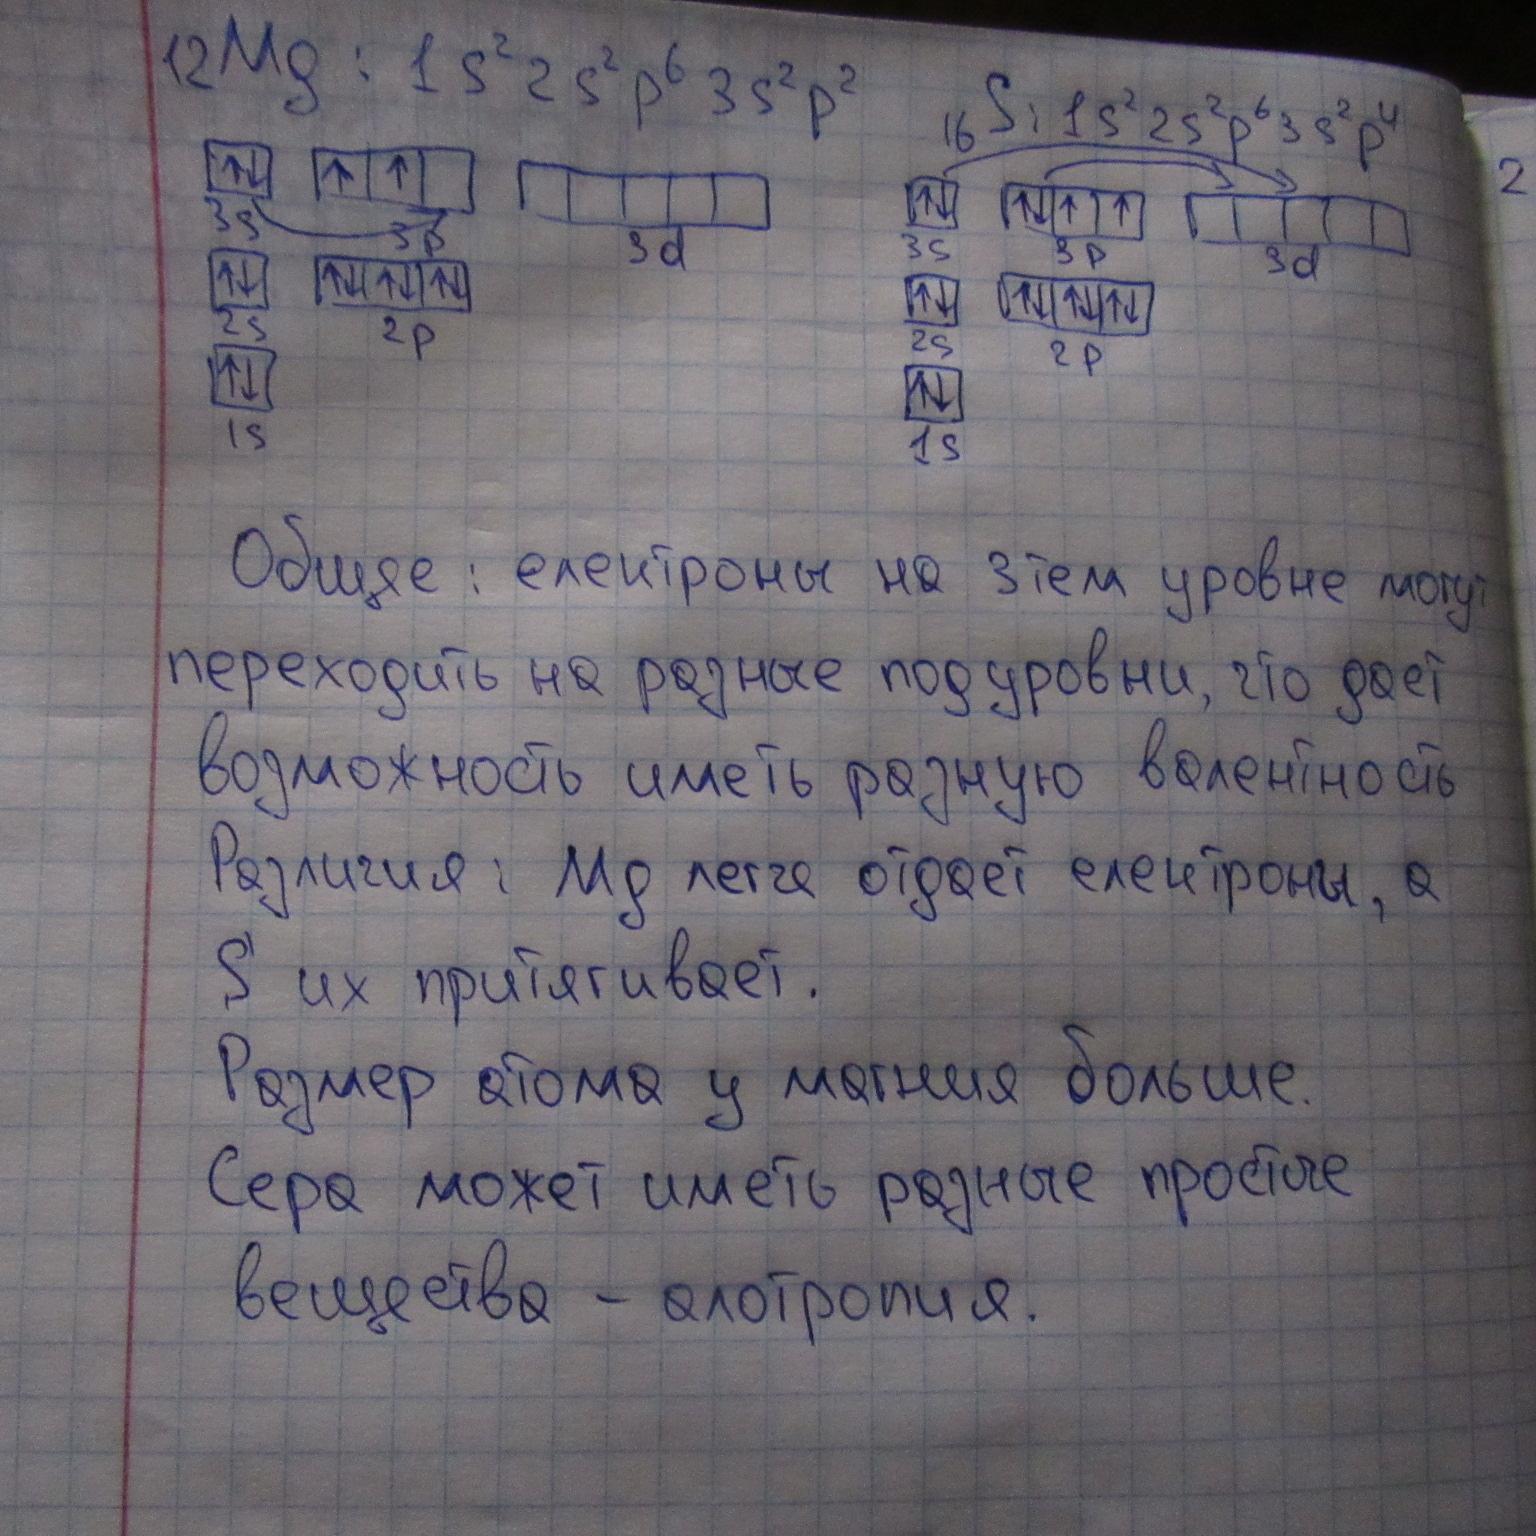 12Mg : 1s²2s²p⁶3s²p²
16S: 1s²2s²p⁶3s²p⁴
2
↑↓ ↑ ↑
3s 3p 3d
↑↓ ↑↓ ↑↓ ↑↓
2s 2p
↑↓
1s
↑↓ ↑↓ ↑ ↑
3s 3p 3d
↑↓ ↑↓ ↑↓ ↑↓
2s 2p
↑↓
1s
Общее : електроны на 3тем уровне могут
переходить на разные подуровни, что дает
возможность иметь разную валентность
Различия: Mg легче отдает електроны, а
S их притягивает.
Размер атома у магния больше.
Сера может иметь разные простые
вещества - алотропия.